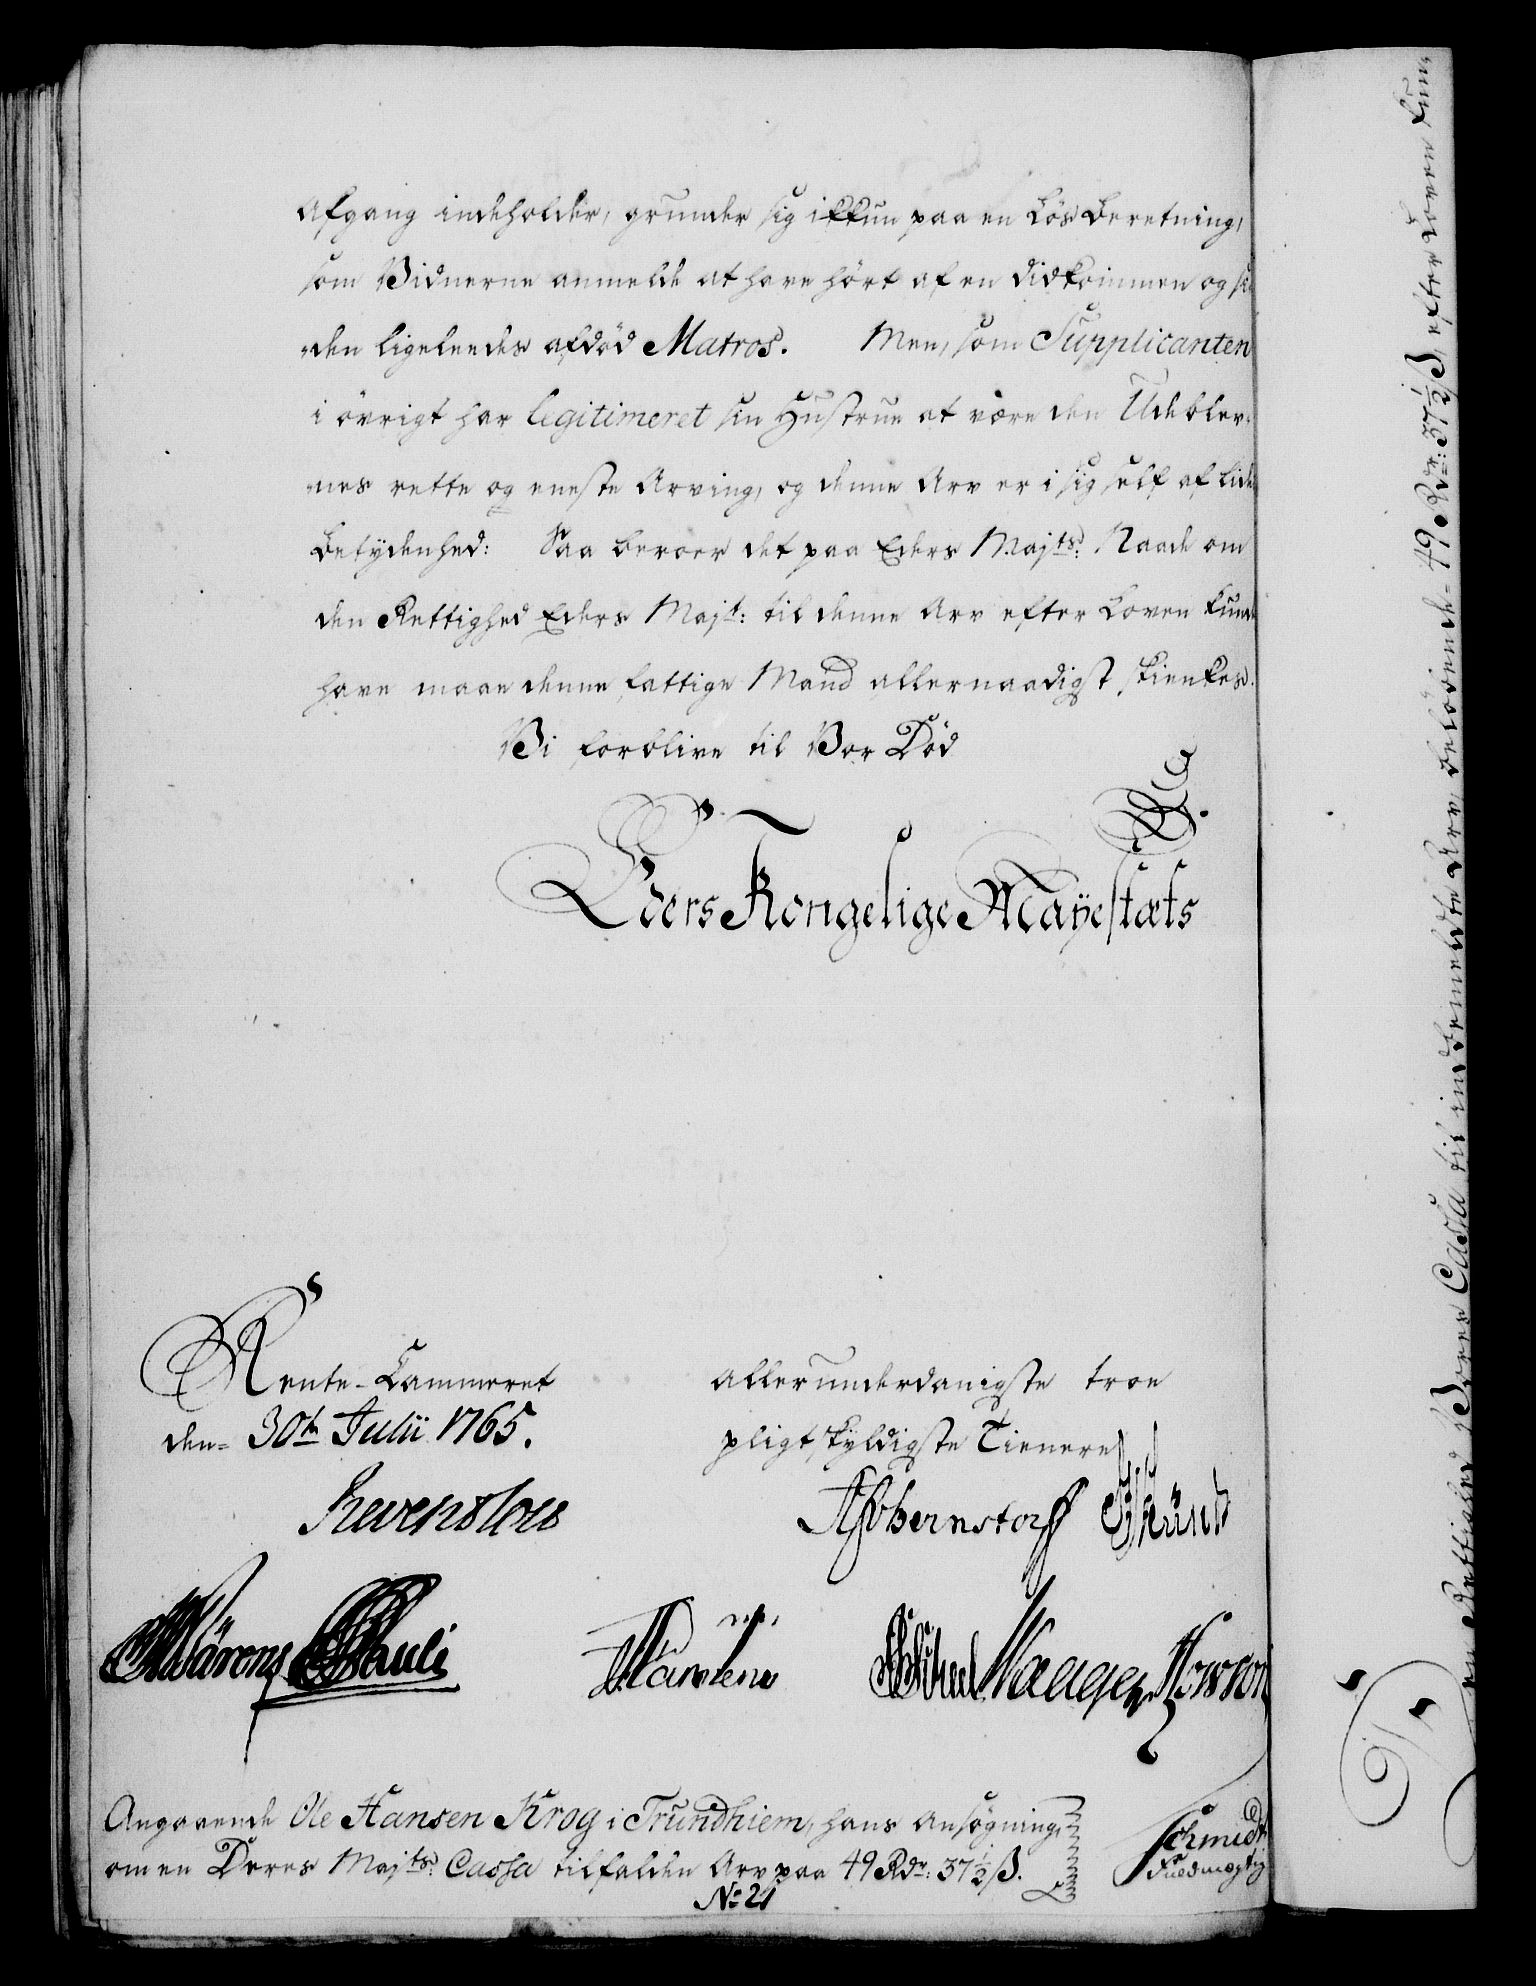 Afgang indeholder, grunder sig ikkun paa en løs Beretning,
som Vidnerne anmelde at have hørt af en didkommen og si
den ligeleedes afdød Matros. Men, som Supplicanten
i øvrigt har legitimeret sin Hustrue at være den Udeblev-
nes rette og eneste Arving, og denne Arv er i sig self af liden
Betydenhed: Saa beroer det paa Eders Majts: Naade om
den Rettighed Eders Majt: til denne Arv efter Loven kunde
have maae denne fattige Mand allernaadigst skienkes.
Vi forblive til Vor Død
Eders Kongelige Mayestæts
Rente-Cammeret
den 30te Julii 1765.
allerunderdanigste troe
pligtskyldigste Tienere
Reventlow
AGvBernstorff
Pauli
Angaaende Ole Hansen Krog i Trundhiem, hans Ansøgning,
om en Deres Majts: Cassa tilfalden Arv paa 49 Rdr: 37½ ß.
Schmidt
Fuldmægtig
No 21
en Rettighed Vores Cassa til indbemeldte Arv, beløbende 49 Rdr: 37½ ß, efter Loven kun,